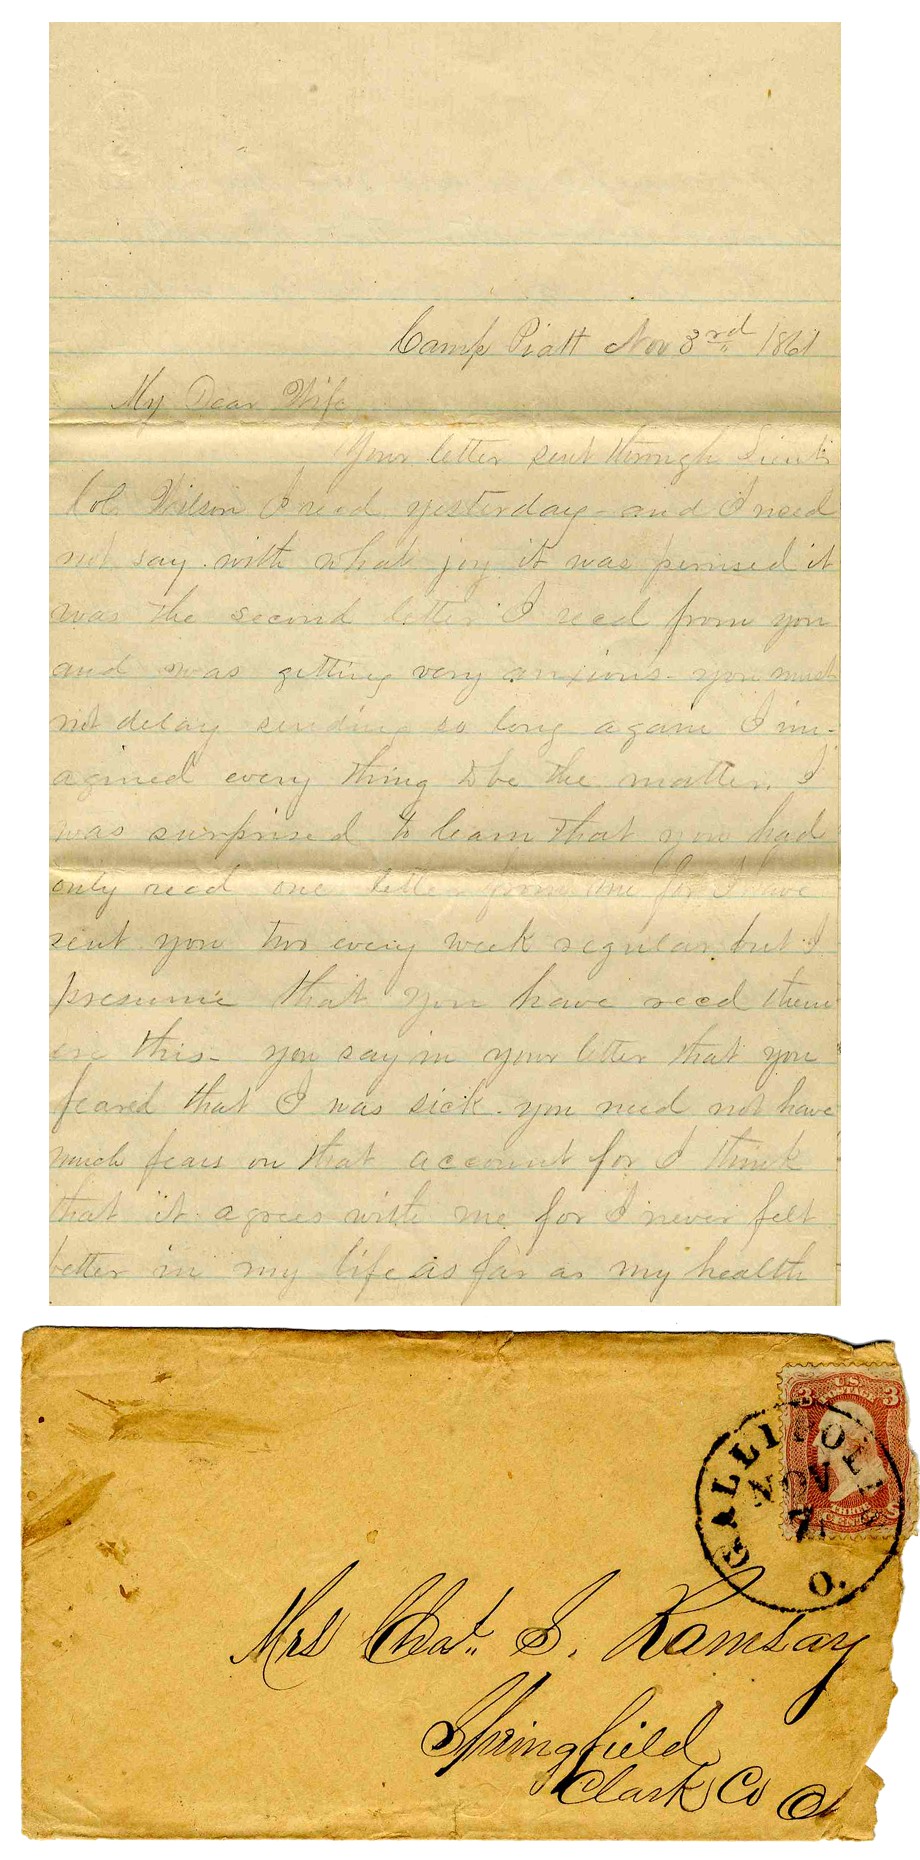 Camp Piatt Nov 3rd 1861
My Dear Wife
Your letter sent through Lieut
Col. Wilson I recd yesterday - and I need
not say with what joy it was perused it
was the second letter I recd from you
and was getting very anxious - you must
not delay sending so long agane I im-
agined every thing to be the matter. I
was surprised to learn that you had
only recd one letter from me for I have
sent you two every week regular but I
presume that you have recd them
ere this - you say in your letter that you
feared that I was sick. you need not have
much fears on that account for I think
that it agrees with me for I never felt
better in my life as far as my health
3 U.S. POSTAGE 3
THREE CENTS
GALLIPOLIS
NOV
7
O.
Mrs Chas. S. Ramsay
Springfield
Clark Co O